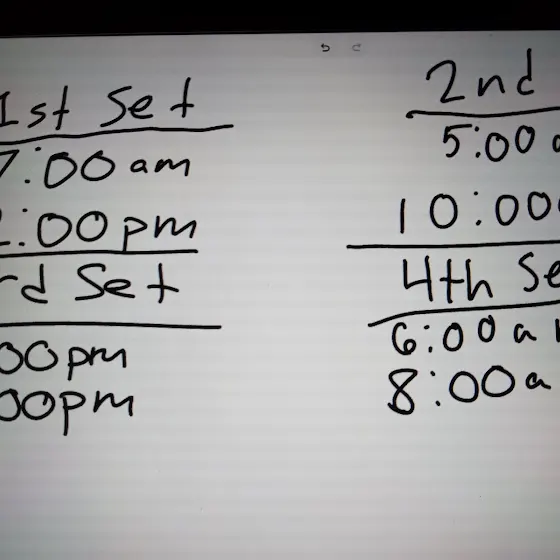 1st Set
7:00 am
:00 pm
rd Set
00 pm
00pm
2nd
5:00 a
10:00
4th Se
6:00 a
8:00 a